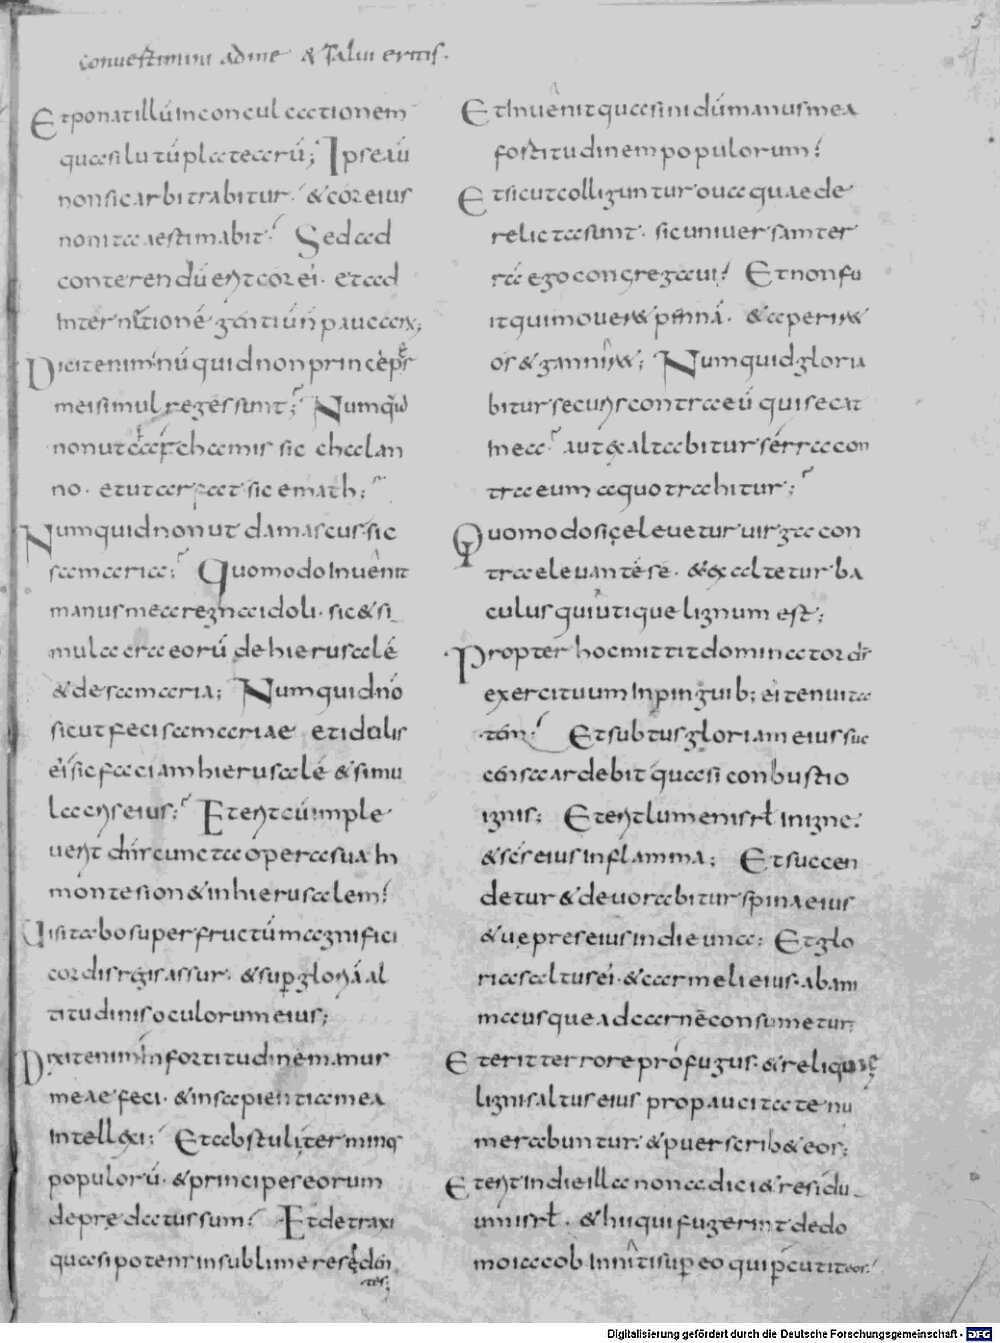 conuertimini ad me & salui eritis.
5
Et ponat illū in conculcationem
quasi lutū platearū; Ipse aū
non sic arbitrabitur. & cor eius
non ita aestimabit; Sed ad
conterendū erit cor ei. et ad
internitionē gentiū n paucarū;
Dicit enim. nūquid non principes
mei simul reges sunt; Numqd
non ut charchamis sic chalan
no. et ut arfat sic emath;
Numquid non ut damascus. sic
samaria; Quomodo inuenit
manus mea regna idoli. sic & si
mulacra eorū de hierusalē
& de samaria; Numquid nō
sicut feci samariae et idolis
ei sic faciam hierusalē & simu
lacris eius; Et erit cū imple
uerit dn̄s cuncta opera sua in
monte sion & in hierusalem.
Uisitabo super fructū magnifici
cordis regis assur. & sup gloriā al
titudinis oculorum eius;
Dixit enim in fortitudine manus
meae feci. & in sapientia mea
intellexi; Et abstuli terminos
populorū. & principes eorum
depredatus sum. Et detraxi
quasi potens in sublime residen
tes;
Et inuenit quasi nidū manus mea
fortitudinem populorum;
Et sicut colliguntur oua quae de
relicta sunt. sic uniuersam ter
rā ego congregaui; Et non fu
it qui moueret pennā. & aperir&
os & gannir&; Numquid gloria
bitur securis contra eū qui secat
in ea. aut exaltabitur serra con
tra eum a quo trahitur;
Quomodo si eleuetur uirga con
tra eleuantē se. & exaltetur ba
culus qui utique lignum est;
Propter hoc mittit dominator dn̄s
exercituum in pinguib; ei tenuita
tem. Et subtus gloriam eius suc
censa ardebit quasi conbustio
ignis; Et erit lumen isrł in igne.
& scs eius in flamma; Et succen
detur & deuorabitur spina eius
& uepres eius in die una; Et glo
ria saltus ei. & carmeli eius. ab ani
ma usque ad carnē consumetur;
Et erit terrore profugus. & reliquiae
ligni saltus eius pro paucitate nu
merabuntur. & puer scrib& eos;
Et erit in die illa non adici& residu
um isrł. & hii qui fugerint de do
mo iacob inniti sup eo qui pcutit eos.
Digitalisierung gefördert durch die Deutsche Forschungsgemeinschaft - DFG